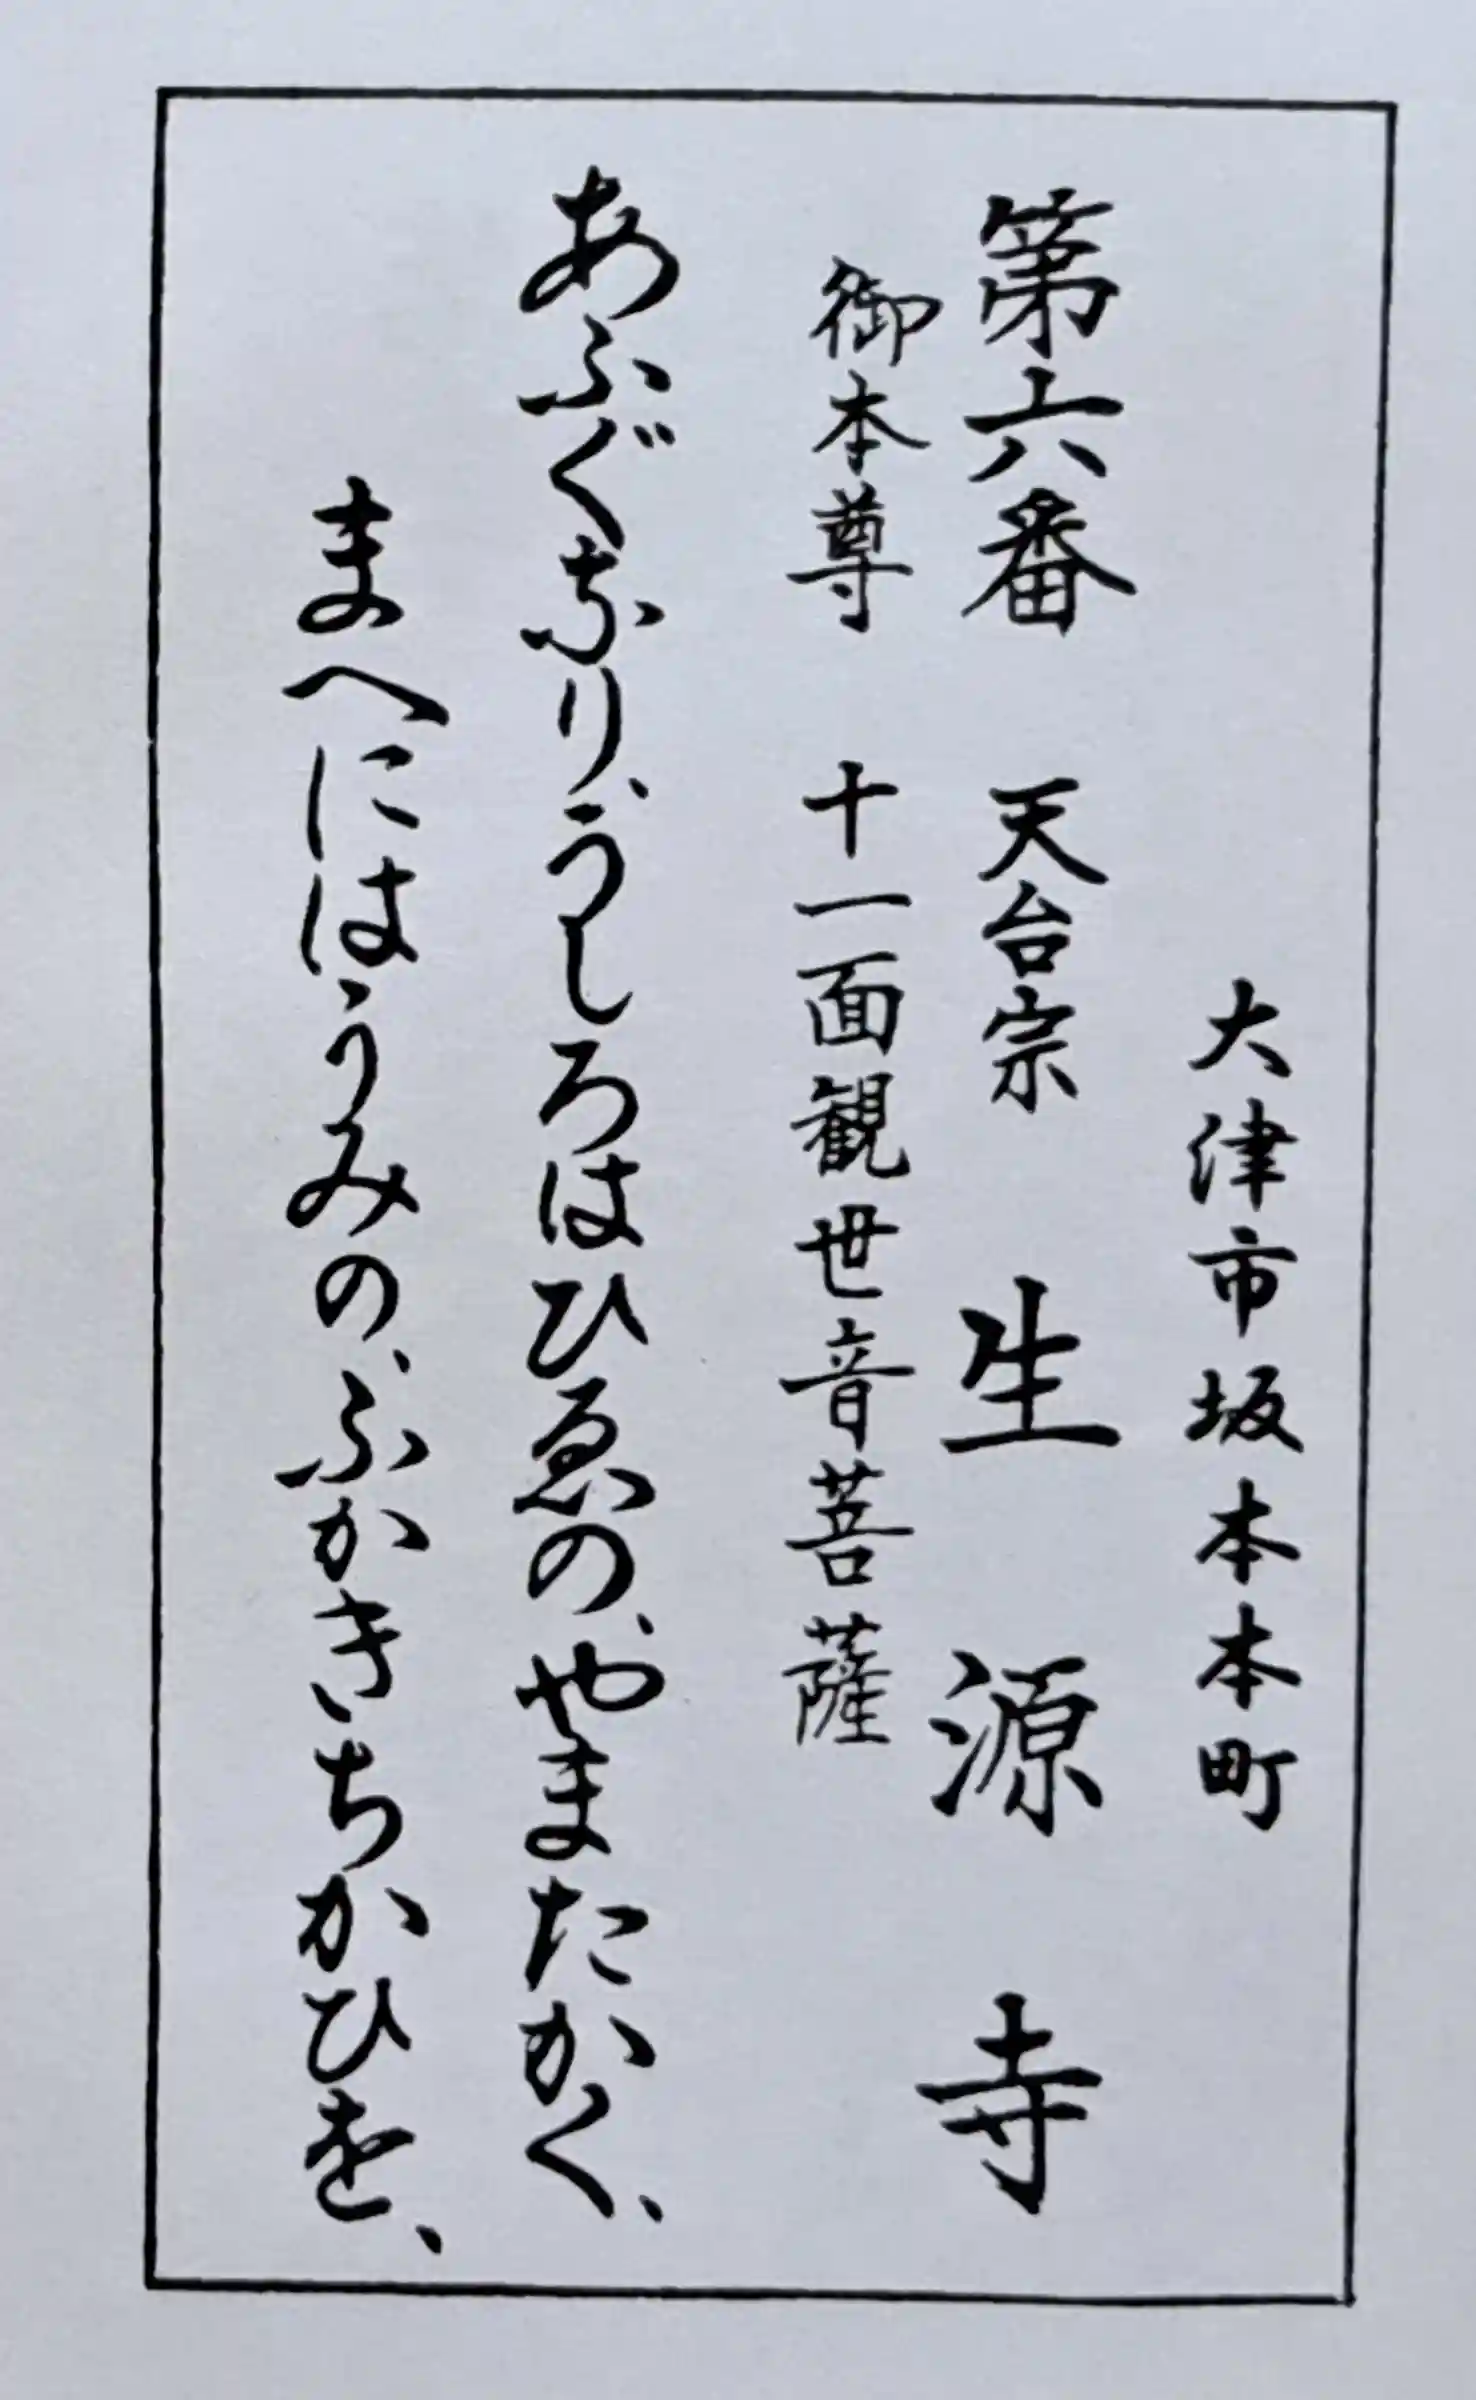 大津市坂本本町
第六番　天台宗　生源寺
御本尊　十一面観世音菩薩
あふぐなり、うしろはひゑの、やまたかく、
まへには、うみの、ふかきちかひを、